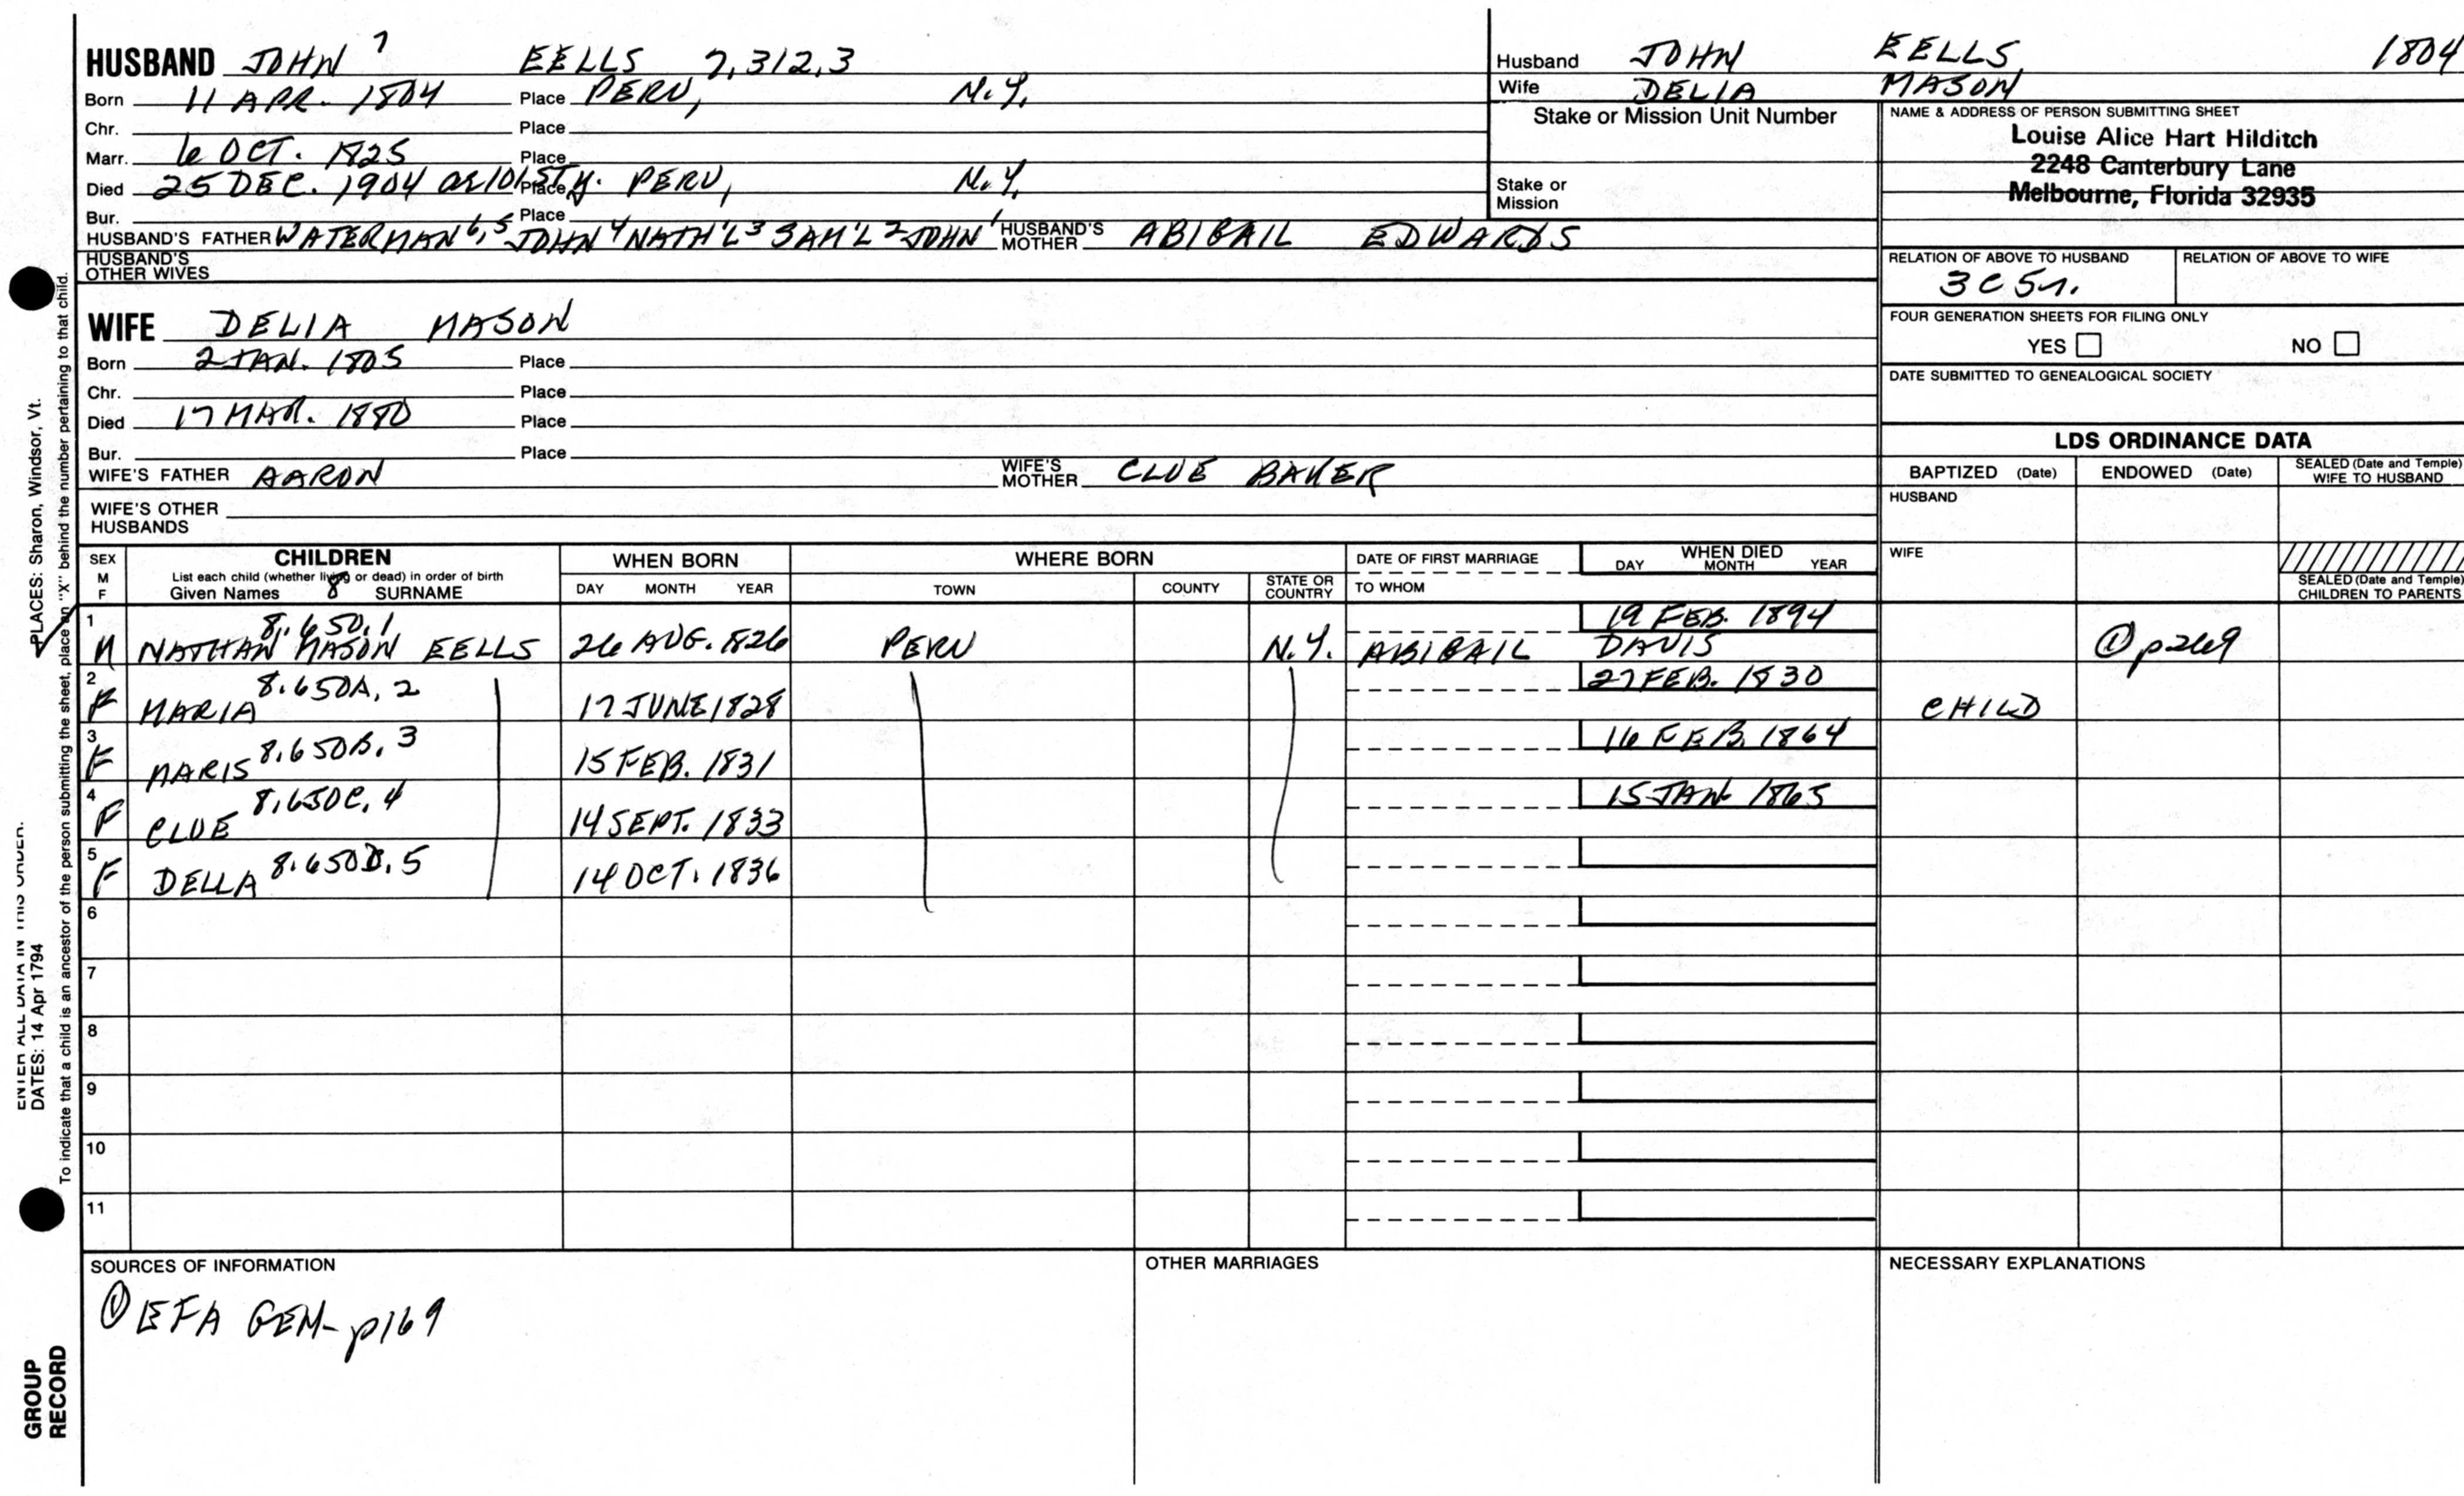 HUSBAND JOHN 7 EELLS 7,312,3
Born 11 APR. 1804 Place PERU, N.Y.
Chr. Place
Marr. 6 OCT. 1825 Place
Died 25 DEC. 1904 Place PERU, N.Y.
Bur. Place
HUSBAND'S FATHER WATERMAN 6,5 JOHN 4 NATH'L 3 SAM'L 2 JOHN 1 HUSBAND'S MOTHER ABIGAIL EDWARDS
HUSBAND'S OTHER WIVES
WIFE DELIA MASON
Born 2 JAN. 1805 Place
Chr. Place
Died 17 MAR. 1880 Place
Bur. Place
WIFE'S FATHER AARON WIFE'S MOTHER CLUE BAKER
WIFE'S OTHER HUSBANDS
Husband JOHN EELLS 1804
Wife DELIA MASON
Stake or Mission Unit Number
Stake or Mission
NAME & ADDRESS OF PERSON SUBMITTING SHEET
Louise Alice Hart Hilditch
2248 Canterbury Lane
Melbourne, Florida 32935
RELATION OF ABOVE TO HUSBAND RELATION OF ABOVE TO WIFE
3C5r.
FOUR GENERATION SHEETS FOR FILING ONLY
YES NO
DATE SUBMITTED TO GENEALOGICAL SOCIETY
LDS ORDINANCE DATA
BAPTIZED (Date) ENDOWED (Date) SEALED (Date and Temple) WIFE TO HUSBAND
HUSBAND
WIFE
SEALED (Date and Temple) CHILDREN TO PARENTS
SEX M F CHILDREN WHEN BORN WHERE BORN DATE OF FIRST MARRIAGE WHEN DIED
List each child (whether living or dead) in order of birth
Given Names 8 SURNAME DAY MONTH YEAR TOWN COUNTY STATE OR COUNTRY TO WHOM DAY MONTH YEAR
1 8.650,1 19 FEB. 1894
M NATHAN MASON EELLS 26 AUG. 1826 PERU N.Y. ABIGAIL DAVIS ① p269
2 8.650A, 2 27 FEB. 1830
F MARIA 17 JUNE 1828 CHILD
3 8.650B, 3 16 FEB. 1864
F MARIS 15 FEB. 1831
4 8.650C, 4 15 JAN 1865
F CLUE 14 SEPT. 1833
5 8.650D, 5
F DELLA 14 OCT. 1836
6
7
8
9
10
11
SOURCES OF INFORMATION OTHER MARRIAGES NECESSARY EXPLANATIONS
① EFA GEM- p169
PLACES: Sharon, Windsor, Vt.
To indicate that a child is an ancestor of the person submitting the sheet, place an "X" behind the number pertaining to that child.
ENTER ALL DATA IN THIS ORDER:
DATES: 14 Apr 1794
GROUP
RECORD